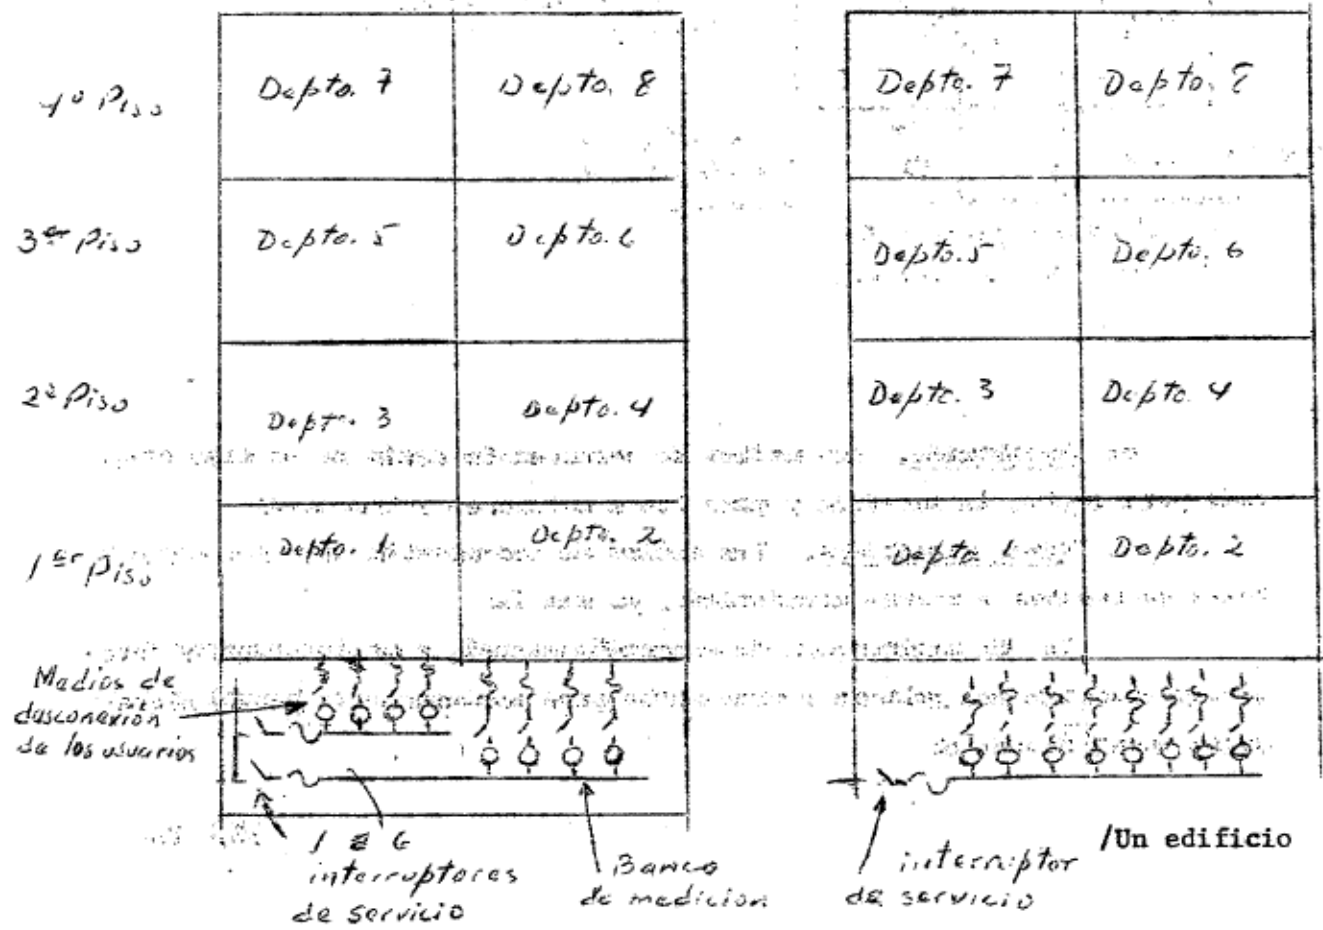 4º Piso
Depto. 7
Depto. 8
Depto. 7
Depto. 8
3er Piso
Depto. 5
Depto. 6
Depto. 5
Depto. 6
2º Piso
Depto. 3
Depto. 4
Depto. 3
Depto. 4
1er Piso
Depto. 1
Depto. 2
Depto. 1
Depto. 2
Medios de
desconexión
de los usuarios
1 a 6
interruptores
de servicio
Banco
de medicion
interruptor
de servicio
/Un edificio